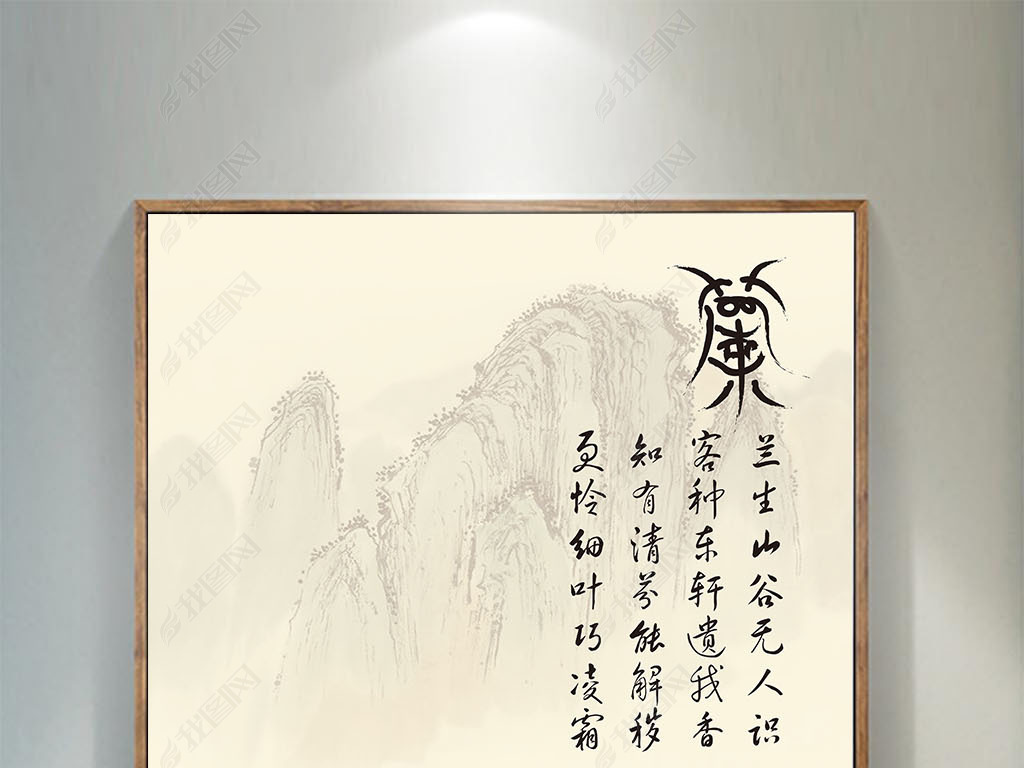 蘭
兰生山谷无人识
客种东轩遗我香
知有清芬能解秽
更怜细叶巧凌霜